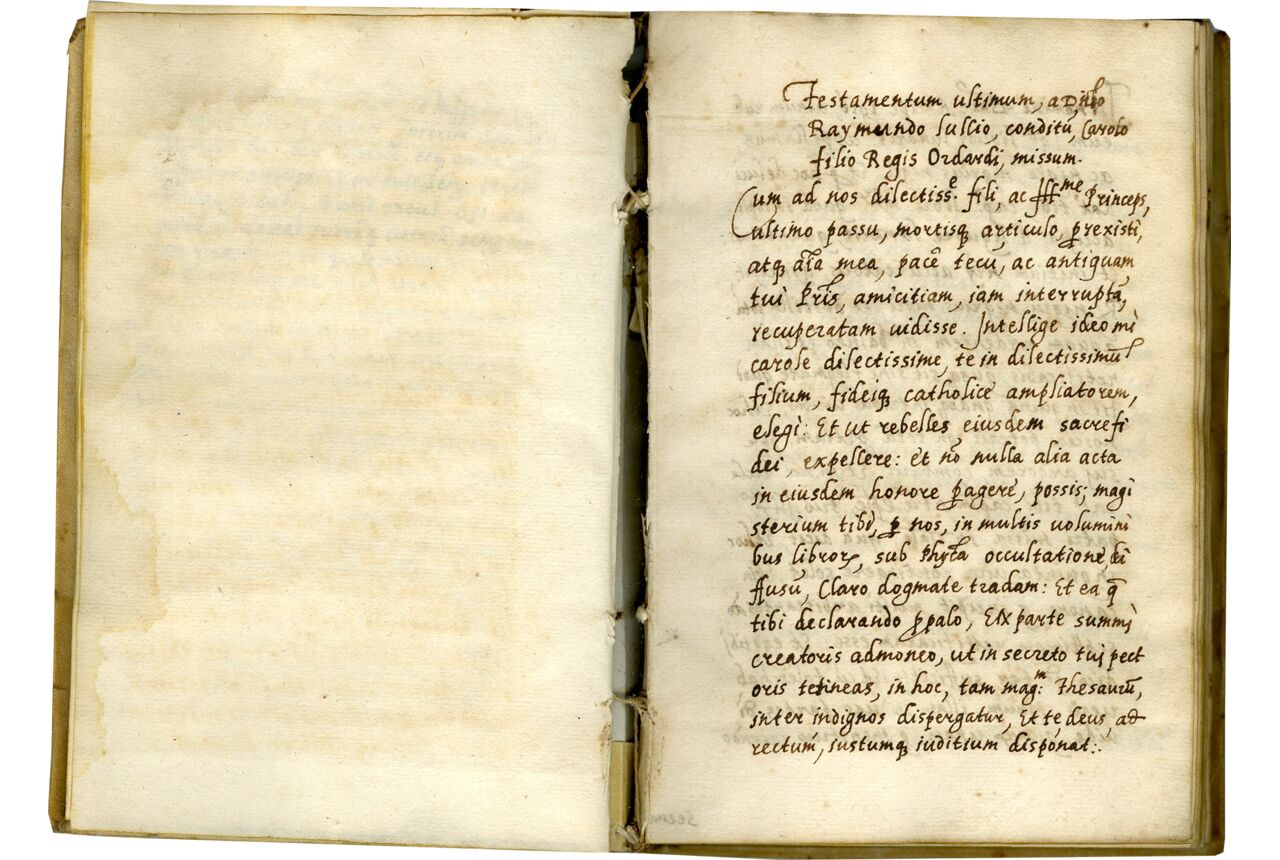 Testamentum ultimum, a Dño
Raymundo lullio, conditũ, Carolo
filio Regis Odardi, missum.
Cum ad nos dilectiss.e fili, ac Ill.me Princeps,
ultimo passu, mortisq; articulo, p̱rexisti,
atq; aĩa mea, pacẽ tecũ, ac antiquam
tui Pris̃, amicitiam, iam interruptã,
recuperatam uidisse. Intellige ideo mi
carole dilectissime, te in dilectissimũ
filium, fideiq; catholicè ampliatorem,
elegi: Et ut rebelles eiusdem sacre fi
dei, expellere: et nõ nulla alia acta
in eiusdem honore p̱agere, possis; magi
sterium tibi, p̱ nos, in multis uolumini
bus libroꝝ, sub Phyĩa occultatione, di
ffusũ, Claro dogmate tradam: Et ea q̃
tibi declarando p̱palo, Ex parte summi
creatoris admoneo, ut in secreto tui pect
oris teneas, in hoc, tam mag.m Thesaurũ,
inter indignos dispergatur, Et te deus, ad
rectum, iustumq; iuditium disponat:.